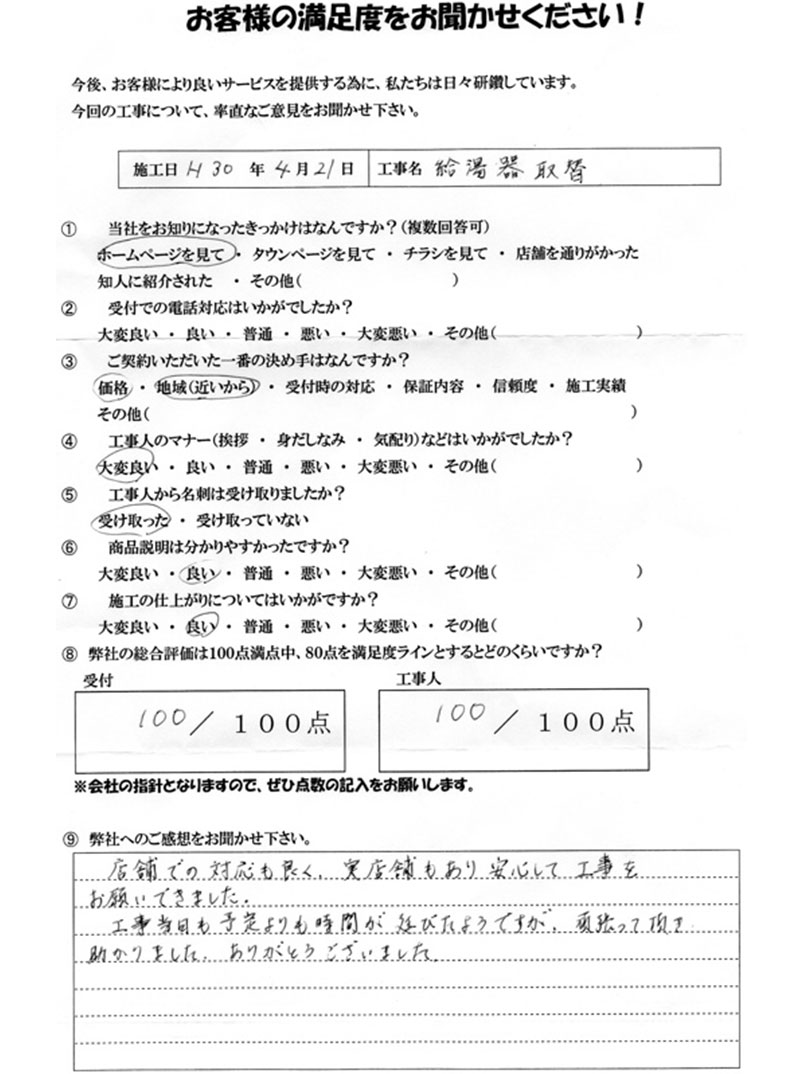 お客様の満足度をお聞かせください！
今後、お客様により良いサービスを提供する為に、私たちは日々研鑽しています。
今回の工事について、率直なご意見をお聞かせ下さい。
施工日 H30 年 4月21日 工事名 給湯器取替
① 当社をお知りになったきっかけはなんですか？（複数回答可）
ホームページを見て ・ タウンページを見て ・ チラシを見て ・ 店舗を通りがかった
知人に紹介された ・ その他（ ）
② 受付での電話対応はいかがでしたか？
大変良い ・ 良い ・ 普通 ・ 悪い ・ 大変悪い ・ その他（ ）
③ ご契約いただいた一番の決め手はなんですか？
価格 ・ 地域（近いから） ・ 受付時の対応 ・ 保証内容 ・ 信頼度 ・ 施工実績
その他（ ）
④ 工事人のマナー（挨拶 ・ 身だしなみ ・ 気配り）などはいかがでしたか？
大変良い ・ 良い ・ 普通 ・ 悪い ・ 大変悪い ・ その他（ ）
⑤ 工事人から名刺は受け取りましたか？
受け取った ・ 受け取っていない
⑥ 商品説明は分かりやすかったですか？
大変良い ・ 良い ・ 普通 ・ 悪い ・ 大変悪い ・ その他（ ）
⑦ 施工の仕上がりについてはいかがですか？
大変良い ・ 良い ・ 普通 ・ 悪い ・ 大変悪い ・ その他（ ）
⑧ 弊社の総合評価は100点満点中、80点を満足度ラインとするとどのくらいですか？
受付 工事人
100 ／ 100点 100 ／ 100点
※会社の指針となりますので、ぜひ点数の記入をお願いします。
⑨ 弊社へのご感想をお聞かせ下さい。
店舗での対応も良く、実店舗もあり安心して工事を
お願いできました。
工事当日も予定よりも時間が延びたようですが、頑張って頂き
助かりました。ありがとうございました。